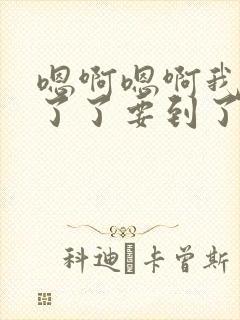 嗯啊嗯啊我
了了要到了
科迪 卡曾斯